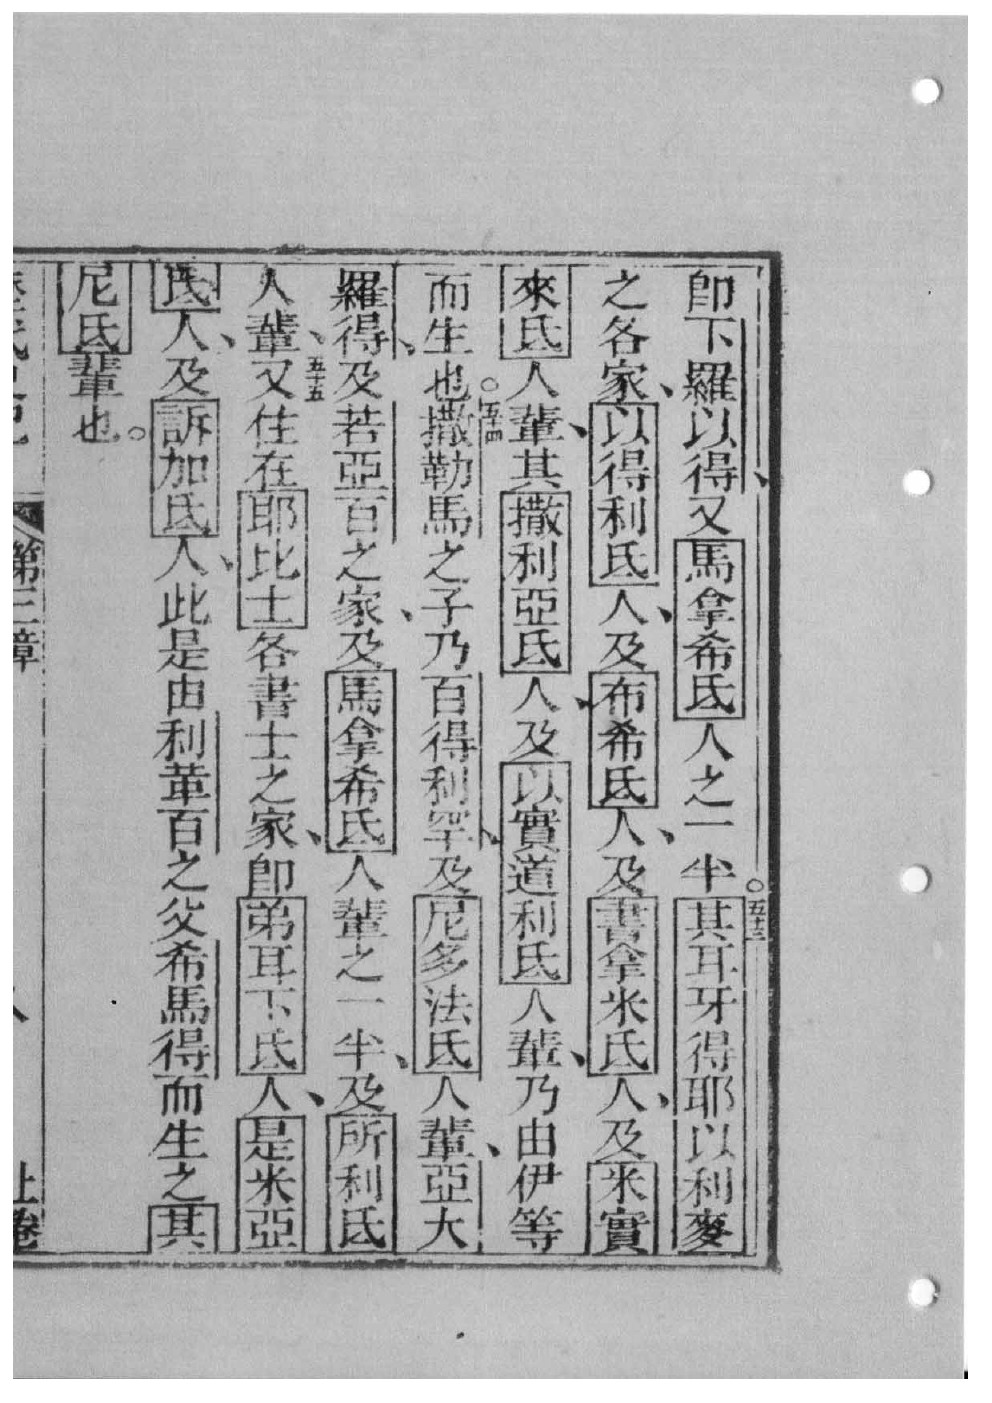 卽下羅以得、又馬拿希氏人之一半。五十三其耳牙得耶以利麥
之各家、以得利氏人、及布希氏人、及書拿米氏人、及米實
來氏人輩、其撒利亞氏人、及以實道利氏人輩、乃由伊等
而生也。五十四撒勒馬之子乃百得利罕、及尼多法氏人輩、亞大
羅得、及若亞百之家、及馬拿希氏人輩之一半、及所利氏
人輩、五十五又住在耶比士各書士之家、卽弟耳下氏人、是米亞
氏人、及訴加氏人、此是由利革百之父希馬得而生之其
尼氏輩也。
第三章
上卷